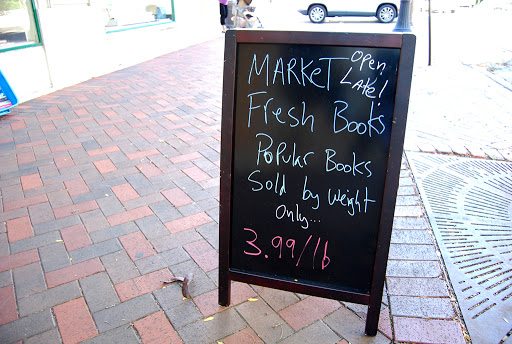 MARKET Open Late!
Fresh Books
Popular Books
Sold by Weight
Only...
3.99/lb